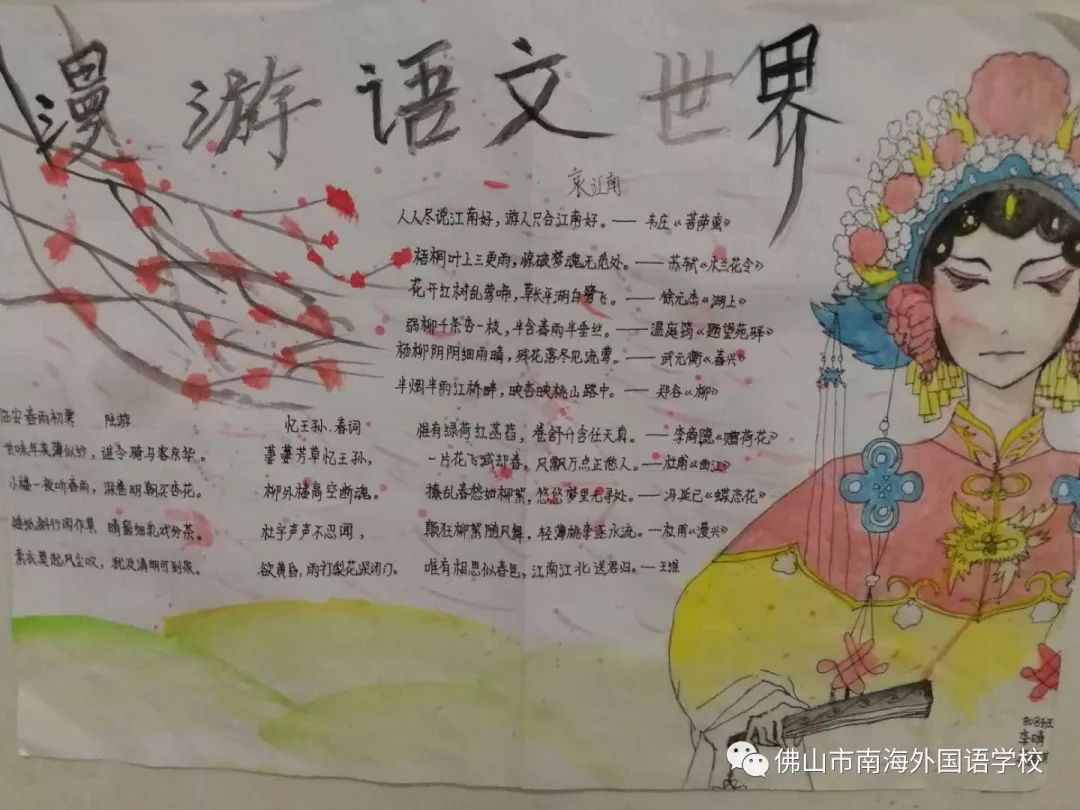 漫游语文世界
哀江南
人人尽说江南好，游人只合江南好。——韦庄《菩萨蛮》
梧桐叶上三更雨，惊破梦魂无觅处。——苏轼《木兰花令》
花开红树乱莺啼，草长平湖白鹭飞。——徐元杰《湖上》
弱柳千条杏一枝，半含春雨半垂丝。——温庭筠《题望苑驿》
杨柳阴阴细雨晴，残花落尽见流莺。——武元衡《春兴》
半烟半雨江桥畔，映杏映桃山路中。——郑谷《柳》
惟有绿荷红菡萏，卷舒开合任天真。——李商隐《赠荷花》
一片花飞减却春，风飘万点正愁人。——杜甫《曲江》
撩乱春愁如柳絮，悠悠梦里无寻处。——冯延巳《蝶恋花》
颠狂柳絮随风舞，轻薄桃李逐水流。——杜甫《漫兴》
唯有相思似春色，江南江北送君归。——王维
忆王孙·春词
萋萋芳草忆王孙，
柳外楼高空断魂。
杜宇声声不忍闻，
欲黄昏，雨打梨花深闭门。
临安春雨初霁 陆游
世味年来薄似纱，谁令骑马客京华。
小楼一夜听春雨，深巷明朝买杏花。
矮纸斜行闲作草 晴窗细乳戏分茶。
素衣莫起风尘叹，犹及清明可到家。
808班
李
佛山市南海外国语学校